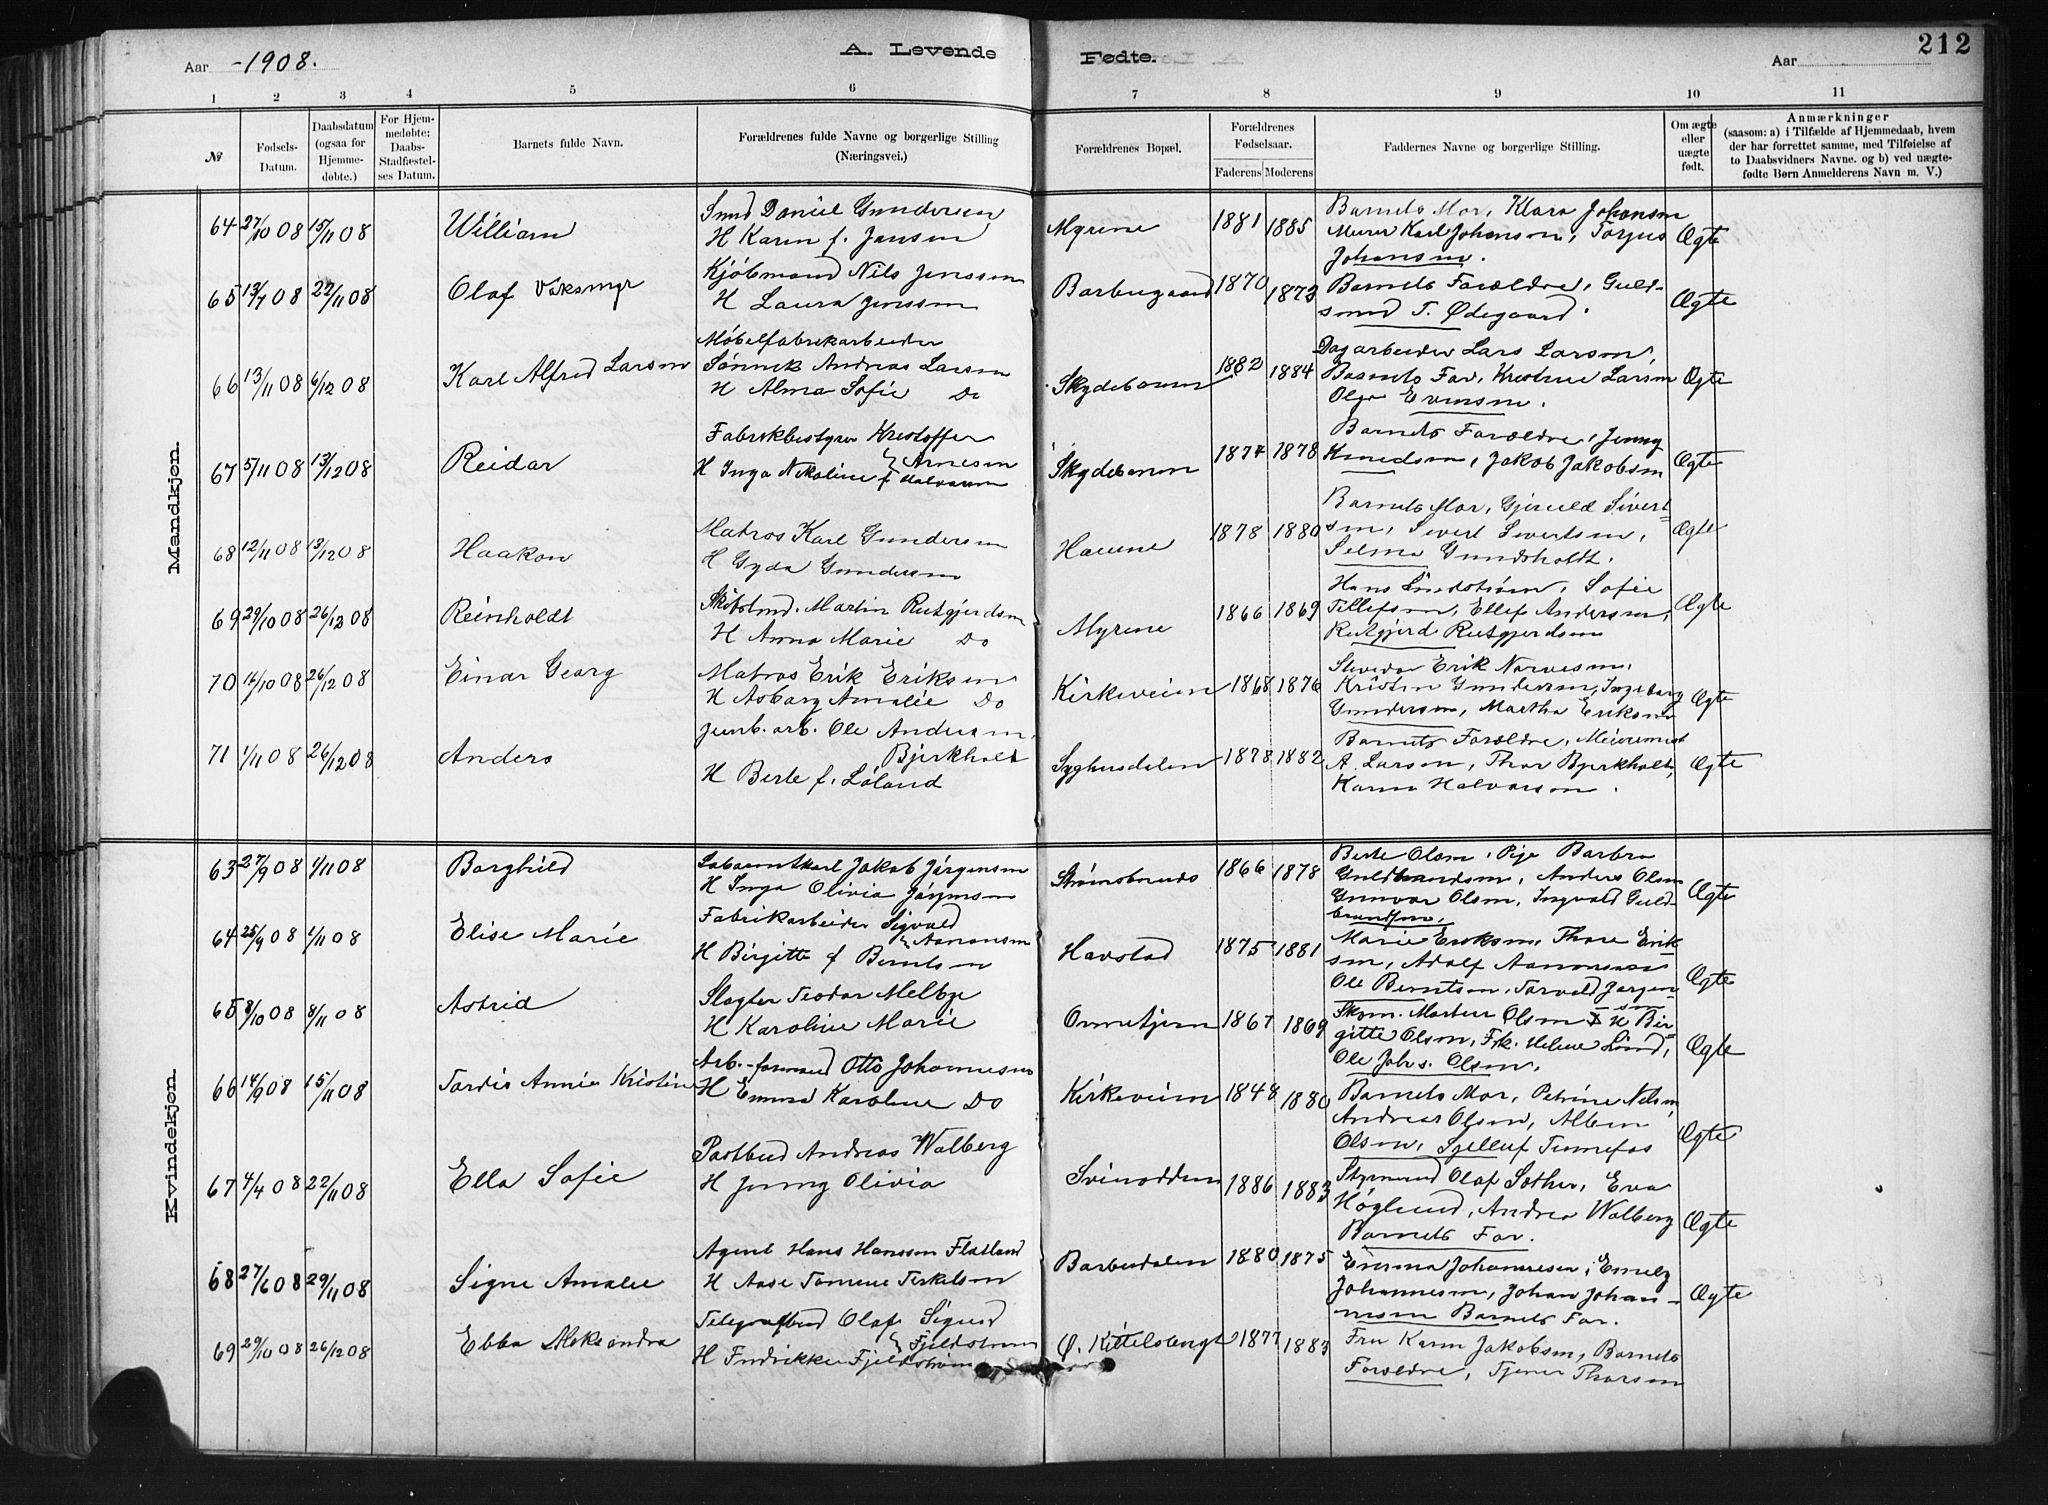 A. Levende Fødte.
212
Aar -1908.
Aar
1 2 3 4 5 6 7 8 9 10 11
№
Fødsels-Datum.
Daabsdatum (ogsaa for Hjemme-døbte.)
For Hjem-medøbte: Daabs-Stadfæstel-ses Datum.
Barnets fulde Navn.
Forældrenes fulde Navne og borgerlige Stilling (Næringsvei.)
Forældrenes Bopæl.
Forældrenes Fødselsaar.
Faderens Moderens
Faddernes Navne og borgerlige Stilling.
Om ægte eller uægte født.
Anmærkninger
(saasom: a) i Tilfælde af Hjemmedaab, hvem
der har forrettet samme, med Tilføielse af
to Daabsvidners Navne. og b) ved uægte-
fødte Børn Anmelderens Navn m. V.)
Mandkjøn.
64 27/10 08 15/11 08 William
Smed Daniel Gundersen
H Karen f. Jansen
Myrene 1881 1885
Barnets Mor, Klara Johansen
Murer Karl Johansen, Torjus
Johansen.
Ægte
65 13/7 08 22/11 08 Olaf
Kjøbmand Nils Jenssen
H Laura Jenssen
Barbugaard 1870 1873
Barnets Forældre, Guld-
smed T. Ødegaard.
Ægte
66 13/11 08 6/12 08 Karl Alfred Larsen
Møbelfabrikarbeider
Sønnik Andreas Larsen
H Alma Sofie Do
Skydebanen 1882 1884
Dagarbeider Lars Larsen,
Barnets Far, Kristine Larsen
Olga Evensen.
Ægte
67 5/11 08 13/12 08 Reidar
Fabrikbestyrer Kristoffer
Arnesen
H Inga Nikoline f Halvorsen
Skydebanen 1874 1878
Barnets Forældre, Jenny
Knudsen, Jakob Jakobsen
Ægte
68 12/11 08 13/12 08 Haakon
Matros Karl Gundersen
H Gyda Gundersen
Havene 1878 1880
Barnets Mor, Gjeruld Sivert-
sen, Sivert Sivertsen,
Selma Gundsholdt.
Ægte
69 29/10 08 26/12 08 Reinholdt
Skibstmd. Martin Rutgjerdsen
H Anna Marie Do
Myrene 1866 1869
Hans Lindstrøm, Sofie
Tellefsen, Ellef Andersen,
Rutgjerd Rutgjerdsen
Ægte
70 16/10 08 26/12 08 Einar Georg
Matros Erik Eriksen
H Asborg Amalie Do
Kirkeveien 1868 1876
Erik Narvesen,
Kristen Gundersen, Ingeborg
Gundersen, Martha Eriksen
Ægte
71 1/11 08 26/12 08 Anders
Jernb. arb. Ole Andersen
Bjerkholt
H Berte f. Løland
Syghusdalen 1878 1882
Barnets Forældre, Meiermest
A. Larsen, Thor Bjerkholt,
Karen Halvorsen.
Ægte
Kvindekjøn.
63 27/9 08 1/11 08 Borghild
Jakob Jørgensen
H Inga Olivia Jørgensen
Strømsbunds 1866 1878
Berte Olsen, Pige Barbra
Guldbrandsen, Anders Olsen
Gunvor Olsen, Ingvald Guld-
brandsen,
Ægte
64 25/9 08 1/11 08 Elise Marie
Fabrikarbeider Sigvald
Aanonsen
H Birgitte f Berntsen
Havstad 1875 1881
Marie Eriksen, Thore Erik-
sen, Adolf Aanonsen
Ole Berntsen, Torvald Jørgen-
sen
Ægte
65 8/10 08 8/11 08 Astrid
Slagter Teodor Melbye
H Karoline Marie
Ormetjern 1867 1869
Skom. Morten Olsen & H Bir-
gitte Olsen, Frk. Helene Lund,
Ole Johs. Olsen.
Ægte
66 14/9 08 15/11 08 Tordis Annie Kristine
Arb.-formand Otto Johannesen
H Emma Karoline Do
Kirkeveien 1848 1880
Barnets Mor, Petrine Nilsen,
Andreas Olsen, Alben
Olsen, Sjelluf Tennefos
Ægte
67 4/4 08 22/11 08 Ella Sofie
Postbud Andreas Walberg
H Jenny Olivia
Svinodden 1886 1883
Styrmand Olaf Sother, Eva
Høglund, Andrea Walberg
Barnets Far.
Ægte
68 27/6 08 29/11 08 Signe Amalie
Agent Hans Hanssen Flatland
H Aase Tomine Terkelsen
Barbudalen 1880 1875
Emma Johannesen, Emely
Johannesen, Johan Johan-
nesen Barnets Far.
Ægte
69 29/10 08 26/12 08 Ebba Aleksandra
Telegrafbud Olaf Sigurd
Fjeldstrøm
H Fredrikke Fjeldstrøm
Ø. Kittelsbugt 1877 1883
Fru Karen Jakobsen, Barnets
Forældre, Tjener Thorsen